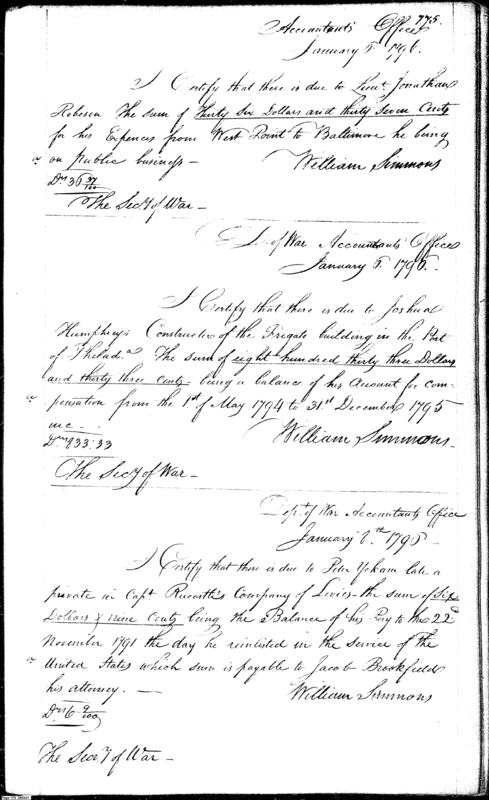 775.
Accountants Office
January 5 1796.
I Certify that there is due to Lieut. Jonathan
Robeson The sum of Thirty Six Dollars and thirty Seven Cents
for his Expences from West Point to Baltimore he being
on public business —
William Simmons
Drs 36 37/100
The Secy of War —
Dt. of War Accountants Office
January 6. 1796.
I Certify that there is due to Joshua
Humphreys Constructor of the Frigate building in the Port
of Philad.a The sum of eight hundred thirty three Dollars
and thirty three Cents - being a balance of his Account for com-
pensation from the 1st of May 1794 to 31st December 1795
inc -
William Simmons -
Drs 833:33
The Secy of War -
Dept. of War Accountants Office
January 8.th 1796 -
I Certify that there is due to Peter Yokam late a
private in Capt Company of Levies - the sum of Six
Dollars & nine Cents being the Balance of his Pay to the 22d
November 1791 the day he reinlisted in the service of the
United States which sum is payable to Jacob Brookfield
his attorney. —
William Simmons
Drs 6 9/100
The Secy of War -